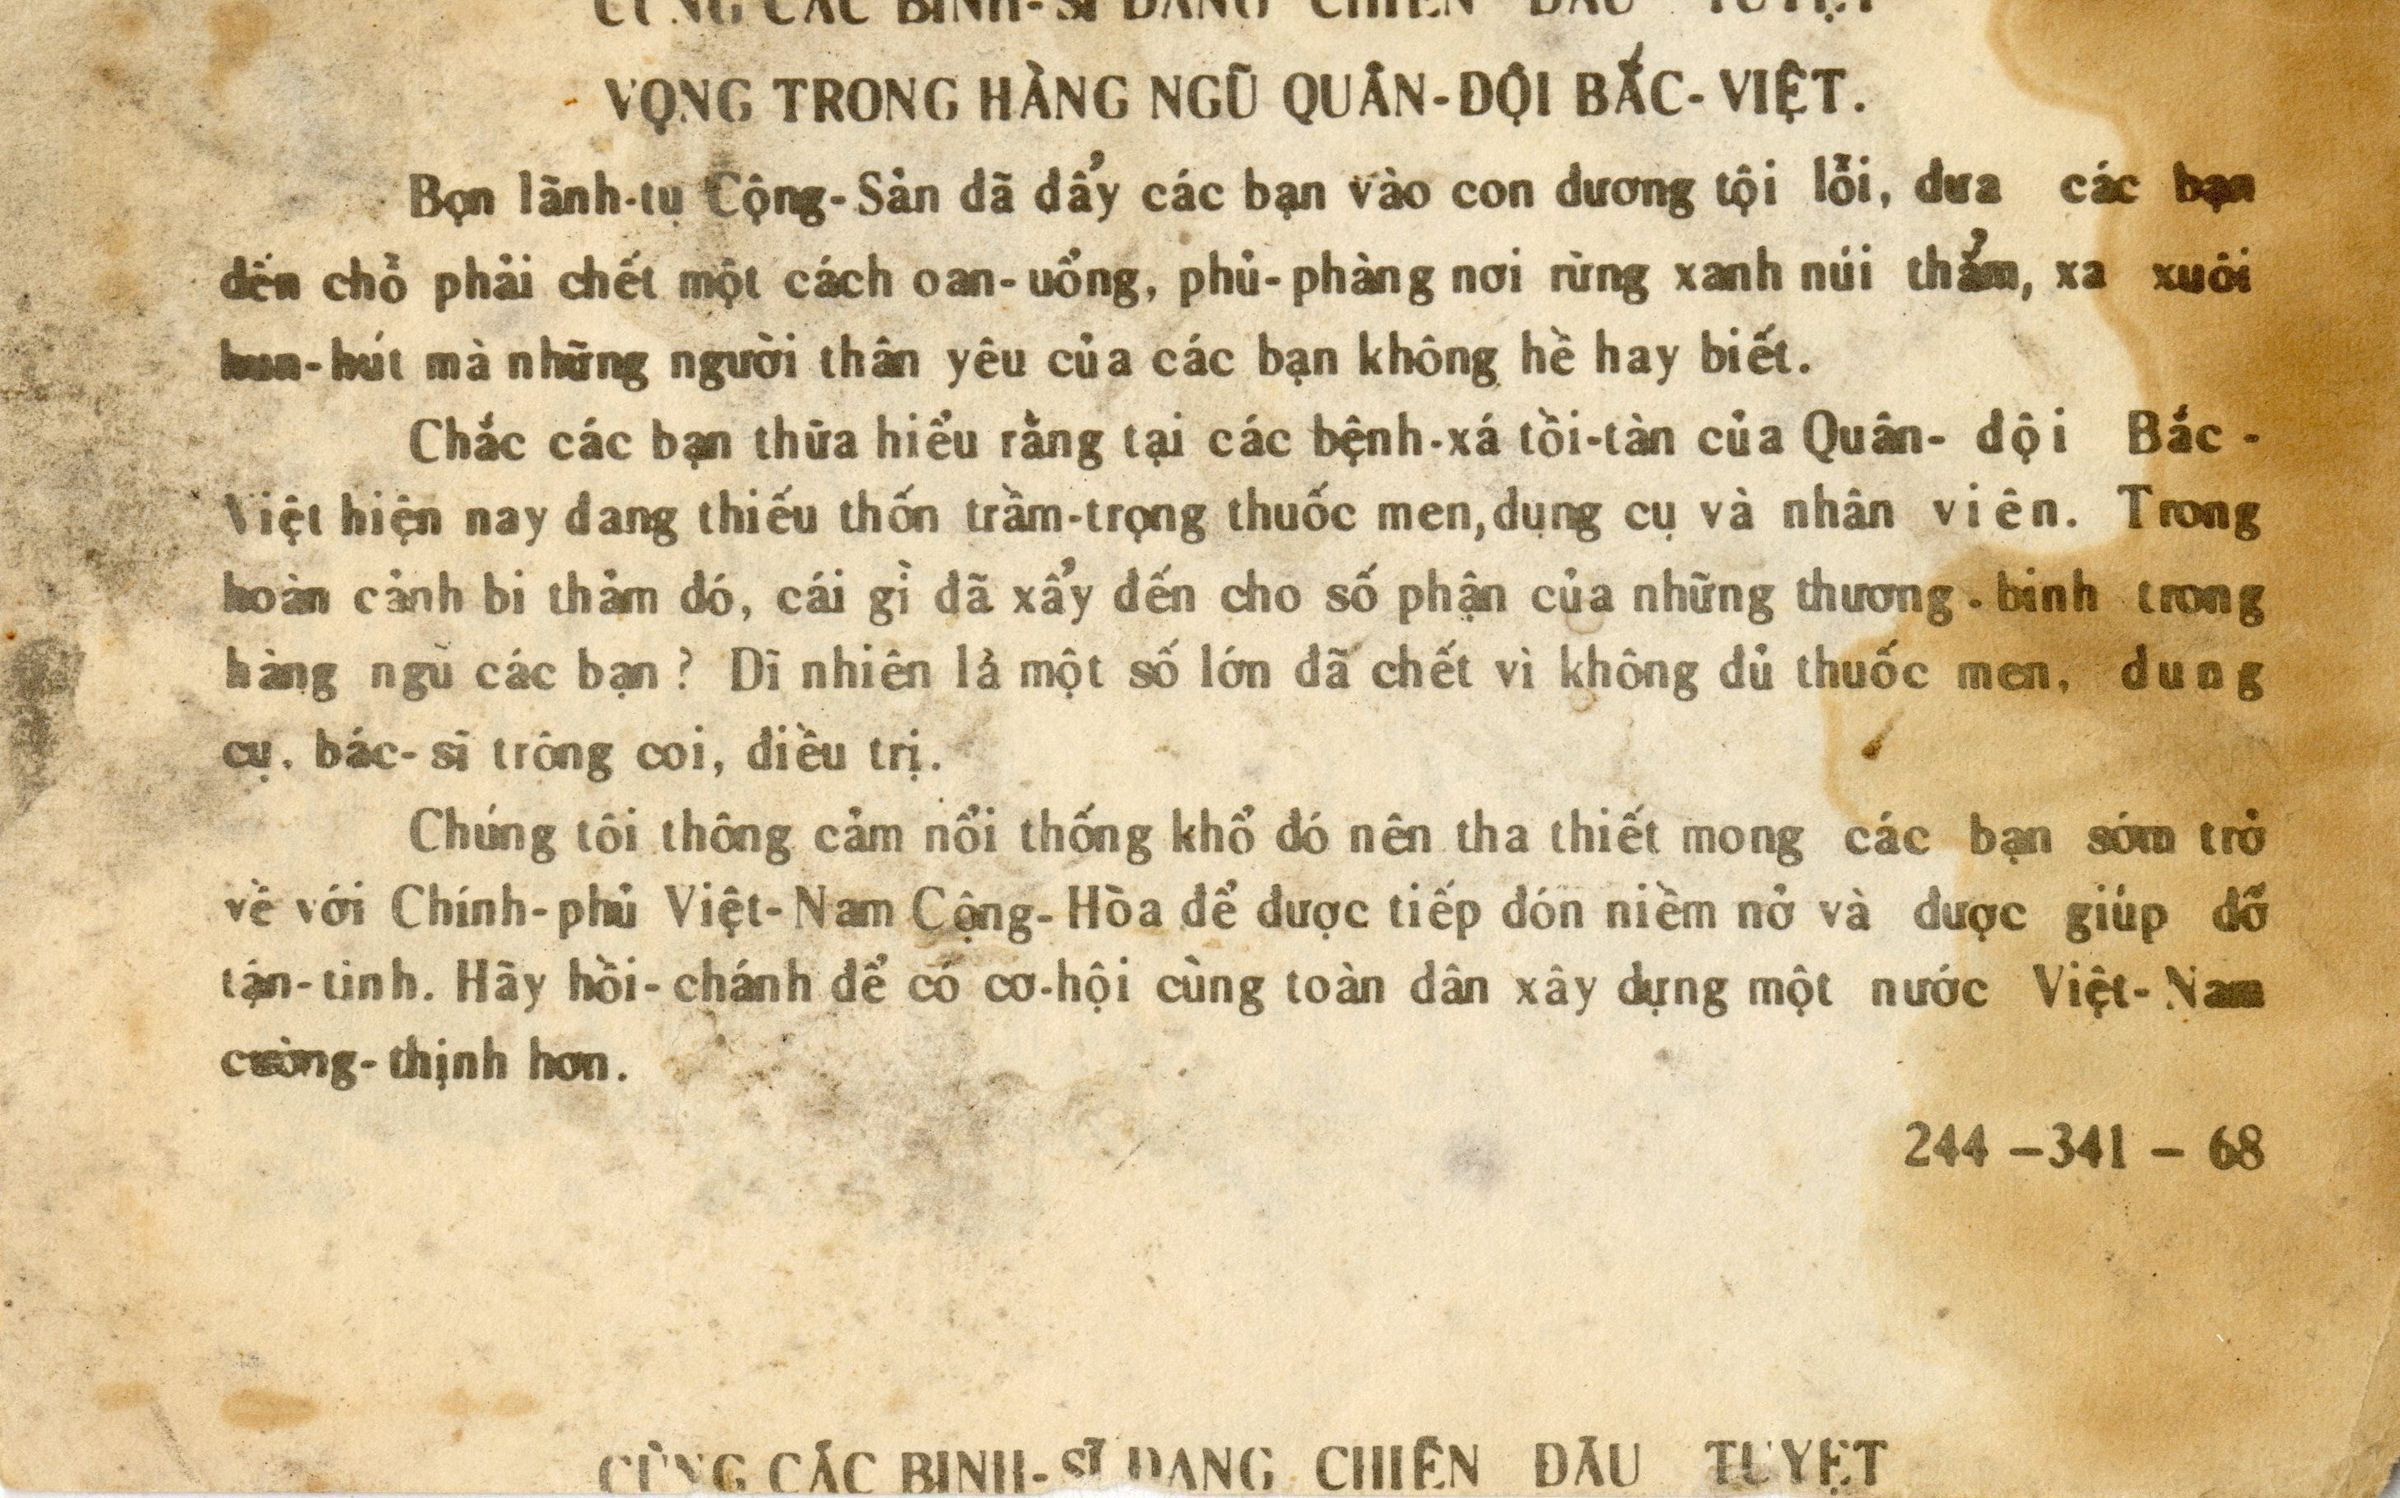 CÙNG CÁC BINH-SĨ ĐANG CHIẾN ĐẤU TUYỆT
VỌNG TRONG HÀNG NGŨ QUÂN-ĐỘI BẮC-VIỆT.
Bọn lãnh-tụ Cộng-Sản đã đẩy các bạn vào con đương tội lỗi, đưa các bạn
đến chỗ phải chết một cách oan-uổng, phủ-phàng nơi rừng xanh núi thẳm, xa xuôi
hun-hút mà những người thân yêu của các bạn không hề hay biết.
Chắc các bạn thừa hiểu rằng tại các bệnh-xá tồi-tàn của Quân-đội Bắc-
Việt hiện nay đang thiếu thốn trầm-trọng thuốc men, dụng cụ và nhân viên. Trong
hoàn cảnh bi thảm đó, cái gì đã xẩy đến cho số phận của những thương-binh trong
hàng ngũ các bạn? Dĩ nhiên là một số lớn đã chết vì không đủ thuốc men, dung
cụ, bác-sĩ trông coi, điều trị.
Chúng tôi thông cảm nổi thống khổ đó nên tha thiết mong các bạn sớm trở
về với Chính-phủ Việt-Nam Cộng-Hòa để được tiếp đón niềm nở và được giúp đỡ
tận-tình. Hãy hồi-chánh để có cơ-hội cùng toàn dân xây dựng một nước Việt-Nam
cường-thịnh hơn.
244-341-68
CÙNG CÁC BINH-SĨ ĐANG CHIẾN ĐẤU TUYỆT